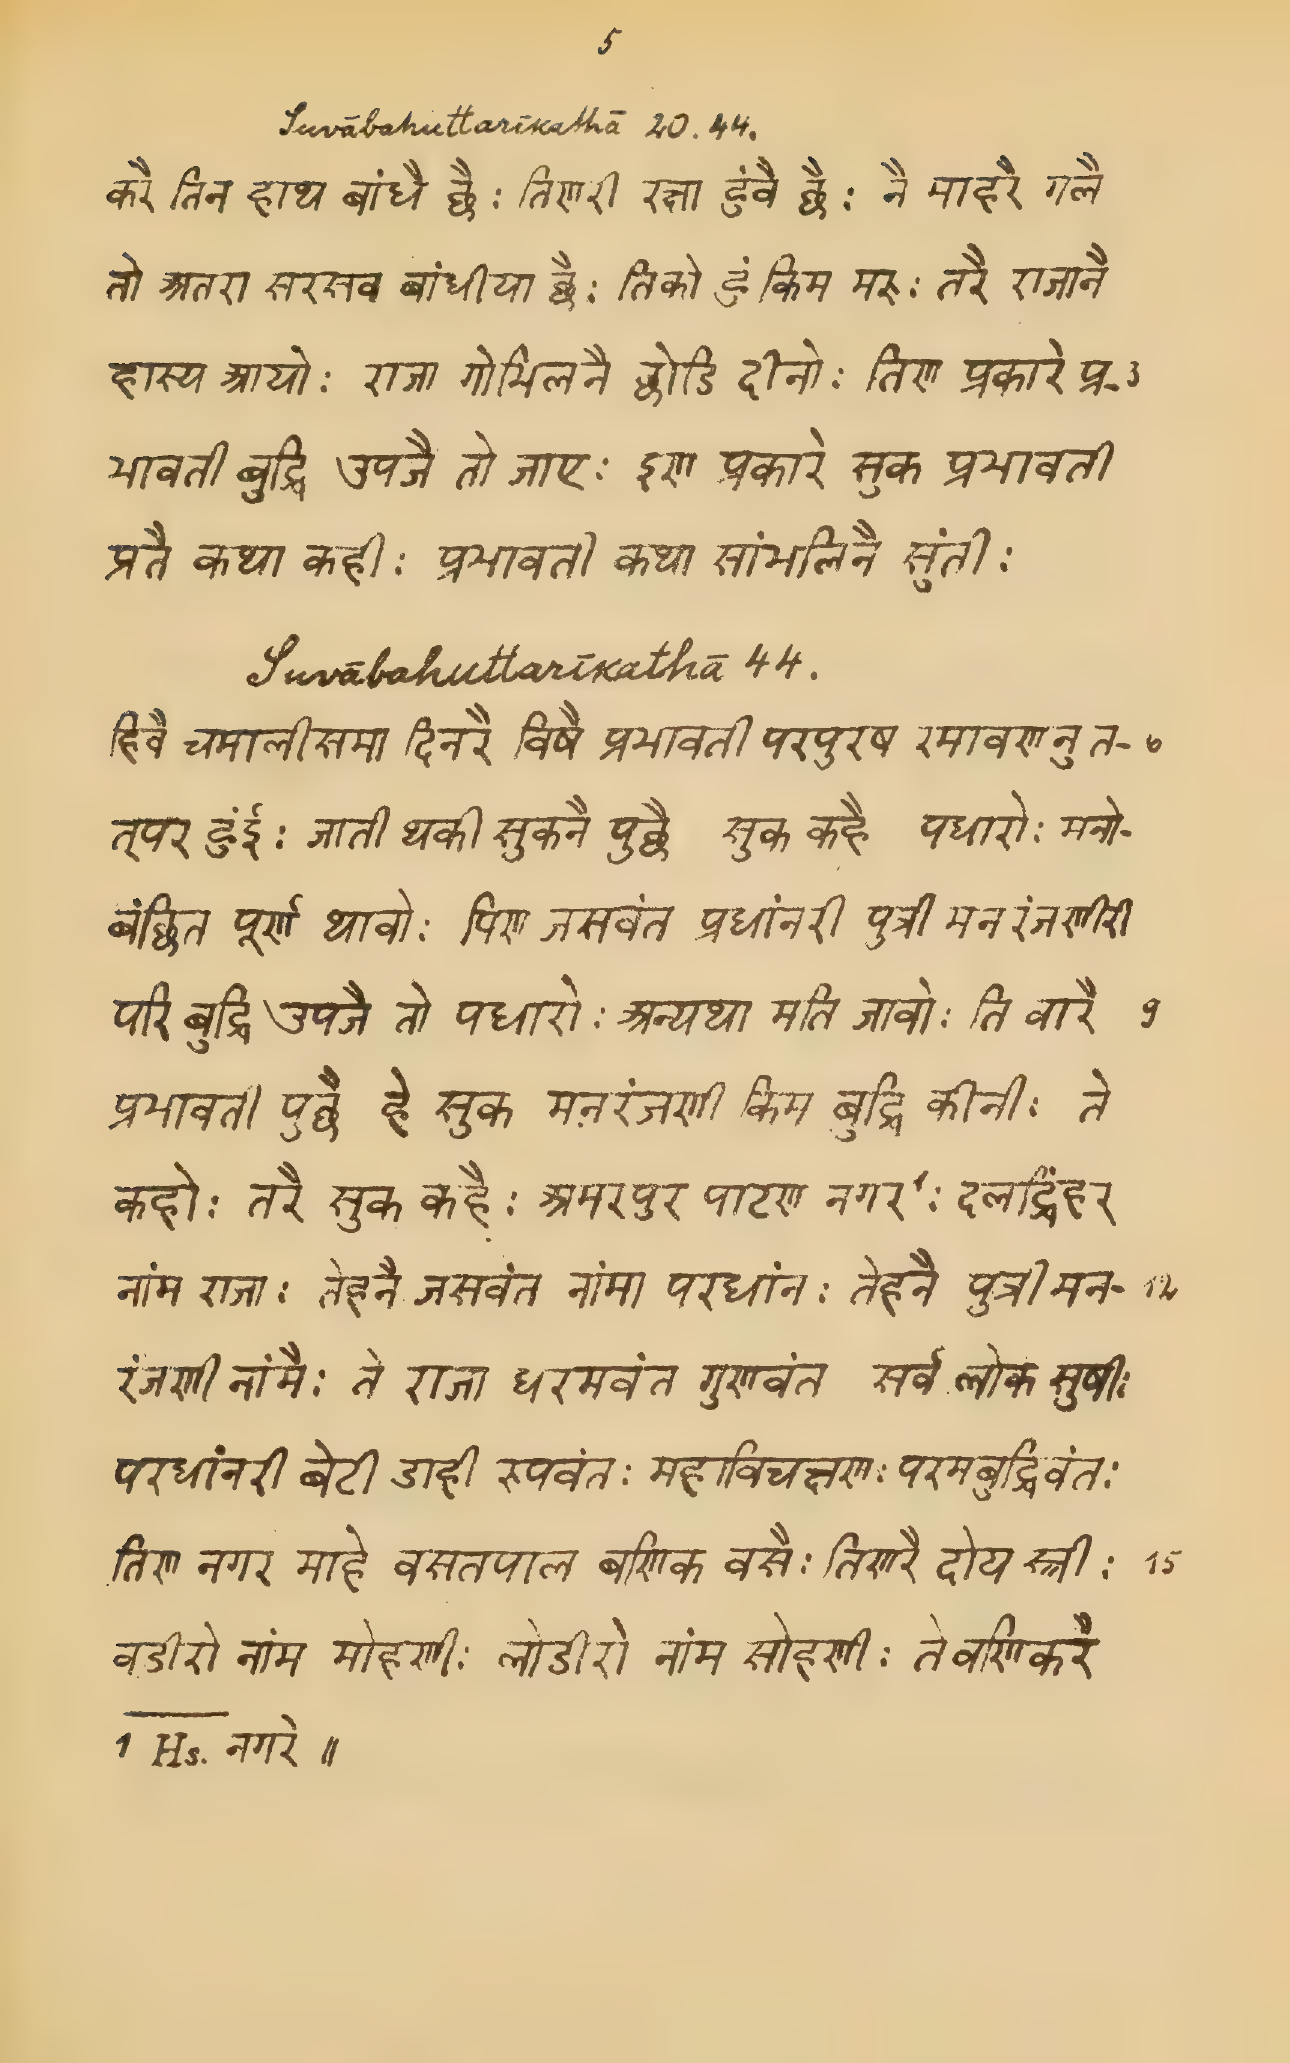 5
Suvābahuttarīkathā 20. 44.
करै तिन हाथ बांधै छै : तिणरी रक्षा हुंवै छै : नै माहरै गलै
तो अतरा सरसव बांधीया छै : तिको हुं किम मरू : तरै राजानै
हास्य आयो : राजा गोभिलनै छोडि दीनो : तिण प्रकारे प्र- 3
भावती बुद्धि उपजै तो जाए : इण प्रकारे सुक प्रभावती
प्रतै कथा कही : प्रभावती कथा सांभलिनै सुंती :
Suvābahuttarīkathā 44.
हिवै चमालीसमा दिनरै विषै प्रभावती परपुरष रमावणनु त- 6
त्पर हुंई : जाती थकी सुकनै पुछै सुक कहै पधारो : मनो-
बंछित पूर्ण थावो : पिण जसवंत प्रधांनरी पुत्री मनरंजणीरी
परि बुद्धि उपजै तो पधारो : अन्यथा मति जावो : ति वारै 9
प्रभावती पुछै हे सुक मनरंजणी किम बुद्धि कीनी : ते
कहो : तरै सुक कहै : अमरपुर पाटण नगर¹ : दलद्रिंहर
नांम राजा : तेहनै जसवंत नांमा परधांन : तेहनै पुत्री मन- 12
रंजणी नांमै : ते राजा धरमवंत गुणवंत सर्व लोक सुषी :
परधांनरी बेटी डाही रुपवंत : महाविचक्षण : परमबुद्धिवंत :
तिण नगर माहे वसतपाल बणिक वसै : तिणरै दोय स्त्री : 15
वडीरो नांम मोहणी : लोडीरो नांम सोहणी : ते वणिकरै
1 Hs. नगरे ॥